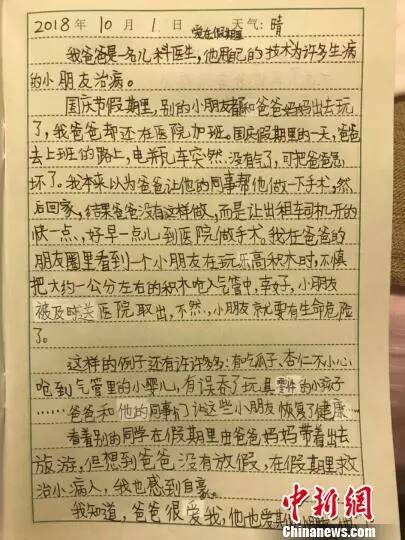 2018年10月1日 天气：晴
爱在假期里
我爸爸是一名儿科医生，他用自己的技术为许多生病
的小朋友治病。
国庆节假期里，别的小朋友都和爸爸妈妈出去玩
了，我爸爸却还在医院加班。国庆假期里的一天，爸爸
去上班的路上，电瓶车突然没有气了，可把爸爸急
坏了。我本来以为爸爸让他的同事帮他做一下手术，然
后回家，结果爸爸没有这样做，而是让出租车司机开的
快一点，好早一点儿到医院做手术。我在爸爸的
朋友圈里看到一个小朋友在玩乐高积木时，不慎
把大约一公分左右的积木呛入气管中，幸好，小朋友
被及时送医院取出，不然，小朋友就要有生命危险
了。
这样的例子还有许许多多：有吃瓜子、杏仁不小心
呛到气管里的小婴儿，有误吞了玩具零件的小孩子
……爸爸和他的同事们让这些小朋友恢复了健康…
看着别的同学在假期里由爸爸妈妈带着出去
旅游，但想到爸爸没有放假，在假期里救
治小病人，我也感到自豪。
我知道，爸爸很爱我，他也爱
中新网
www.chinanews.com